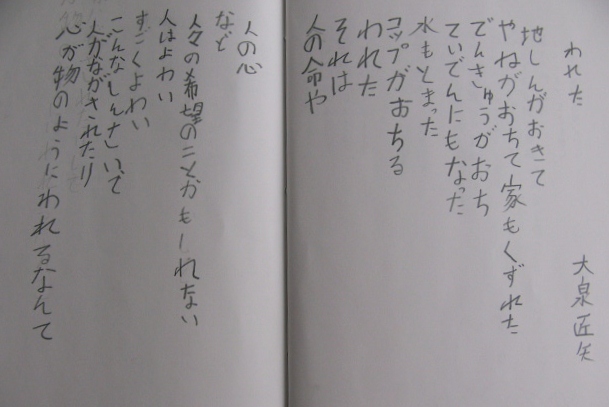 われた
大泉匠矢
地しんがおきて
やねがおちて家もくずれた
でんきゅうがおち
ていでんにもなった
水もとまった
コップがおちる
われた
それは
人の命や
人の心
など
人々の希望のことかもしれない
人はよわい
すごくよわい
こんなしんさいで
人がながされたり
心が物のようにわれるなんて